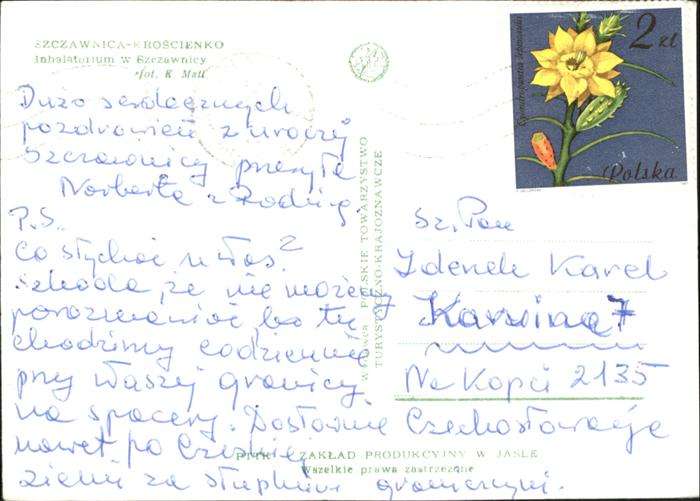 SZCZAWNICA-KROŚCIENKO
Inhalatorium w Szczawnicy
fot. K
Dużo serdecznych
pozdrowień z uroczej
Szczawnicy przesyła
Norberta z Rodziną
P.S.
Co słychać u Was?
Szkoda, że nie możemy
porozmawiać bo tu
chodzimy codziennie
przy Waszej granicy
na spacery. Dosłownie
nawet po Czeskiej
ziemi za słupkami granicznymi.
POLSKIE TOWARZYSTWO
TURYSTYCZNO-KRAJOZNAWCZE
2 zł
Polska
Sz. Pan
Zdenek Karel
Karvina 7
Na Kopci 2135
Czechosłowacja
PTTK ZAKŁAD PRODUKCYJNY W JAŚLE
Wszelkie prawa zastrzeżone